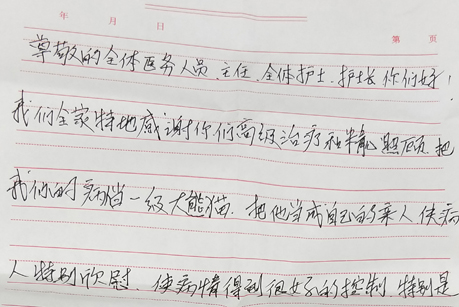 年 月 日
第 页
尊敬的全体医务人员、主任、全体护士、护士长你们好！
我们全家特地感谢你们高级治疗和精心照顾，把
我们的病当一级大熊猫，把他当成自己的亲人使病
人特别欣慰，使病情得到很好的控制，特别是